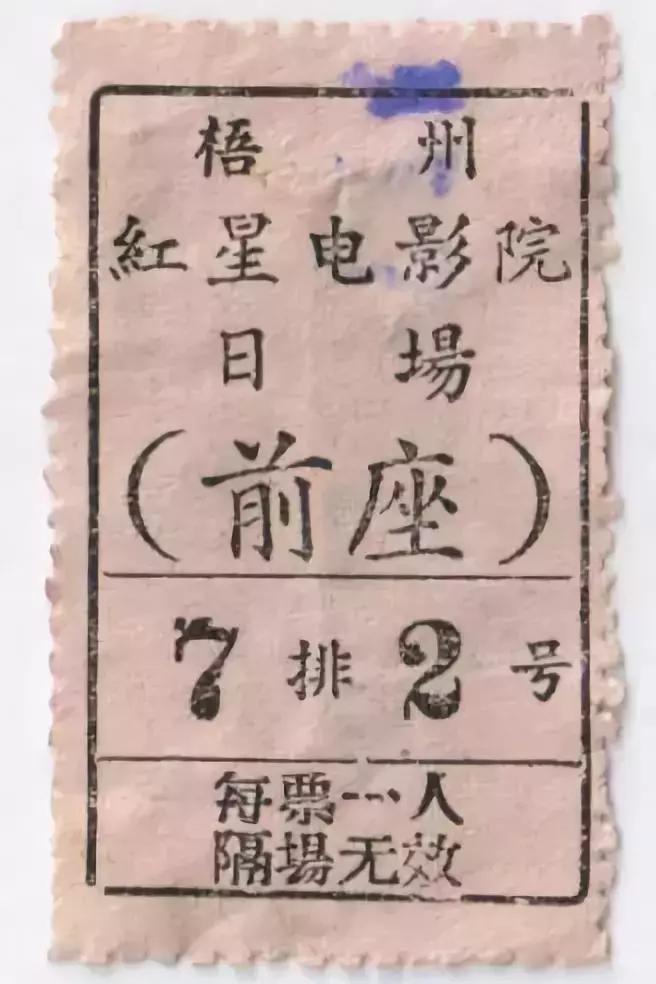 梧州
紅星电影院
日場
(前座)
7排2号
每票一人
隔場无效